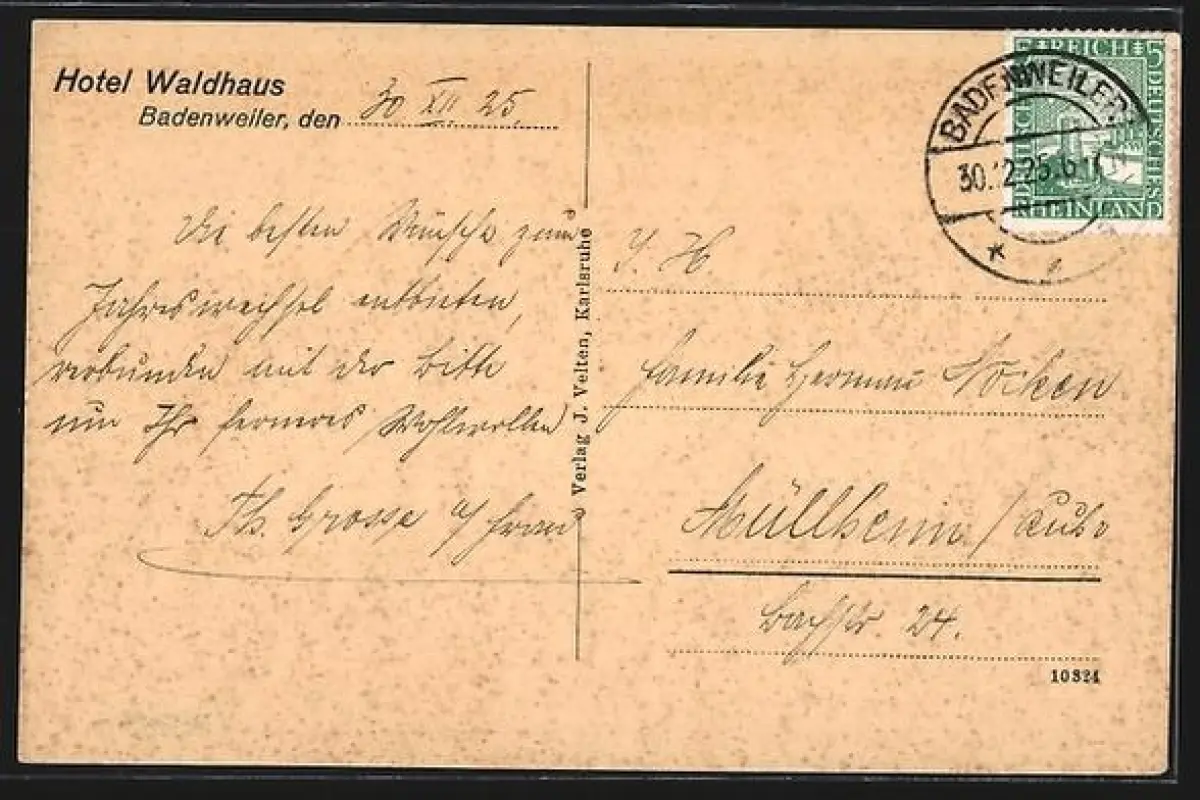 Hotel Waldhaus
Badenweiler, den 30 XII. 25.
Die besten Wünsche zum
Jahreswechsel entbieten,
verbunden mit der Bitte
um Ihr ferneres Wohlwollen
Th. Grosse u/ Frau
Verlag J. Velten, Karlsruhe
5 REICH 5
DEUTSCHES
DEUTSCHES
RHEINLAND
BADENWEILER
30.12.25.6
S. H.
Familie Hermann Nocken
Müllheim / Ruhr
Bachstr. 24.
10324